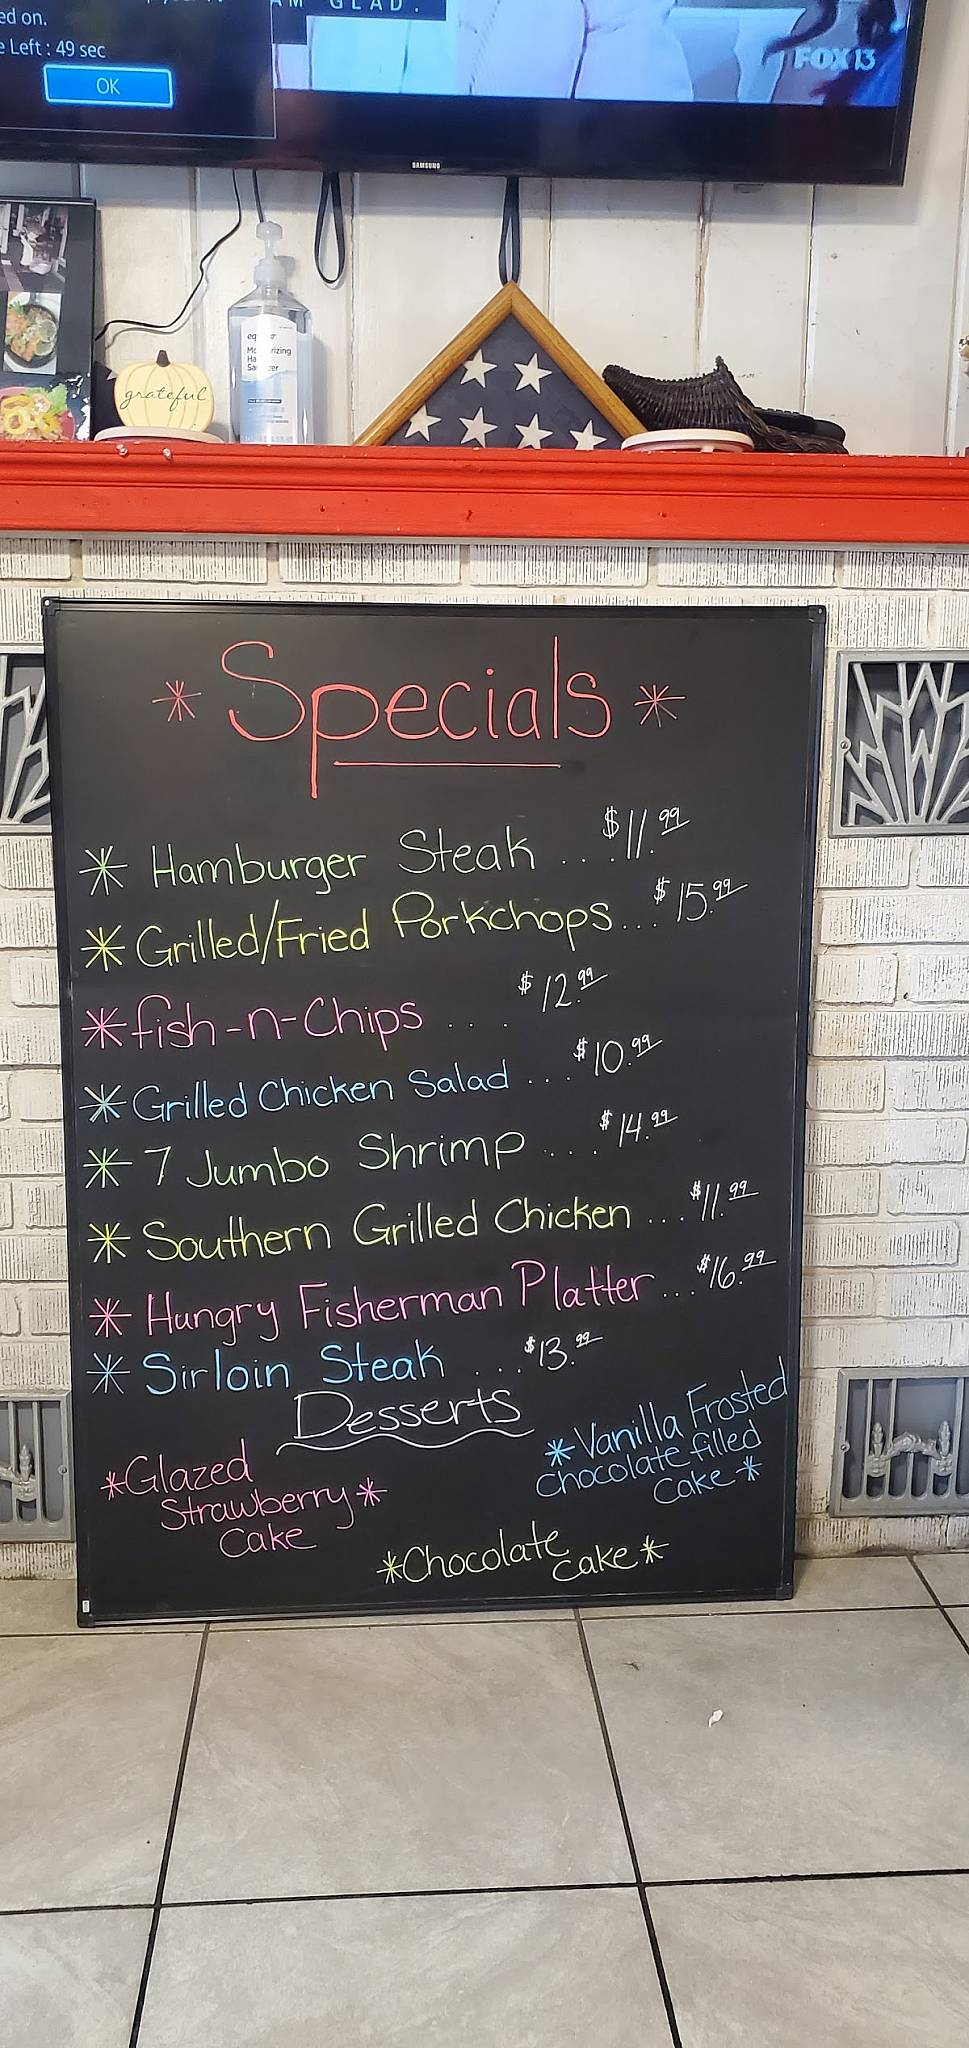 ed on.
e Left : 49 sec
OK
AM GLAD.
FOX 13
SAMSUNG
grateful
Sa
* Specials *
* Hamburger Steak ... $11.99
* Grilled/Fried Porkchops... $15.99
* fish-n-Chips .... $12.99
* Grilled Chicken Salad ... $10.99
* 7 Jumbo Shrimp .... $14.99
* Southern Grilled Chicken ... $11.99
* Hungry Fisherman Platter ... $16.99
* Sirloin Steak ... $13.99
Desserts
*Glazed
Strawberry*
Cake
*Vanilla Frosted
chocolate filled
cake*
*Chocolate
cake*